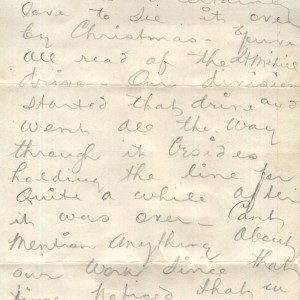 love to see it over
by Christmas - You've
all read of the St Mihiel
drive Our division
started that drive and
went all the way
through it besides
holding the line for
Quite a while after
it was over - Cant
Mention Anything About
our work Since that
time Noticed that